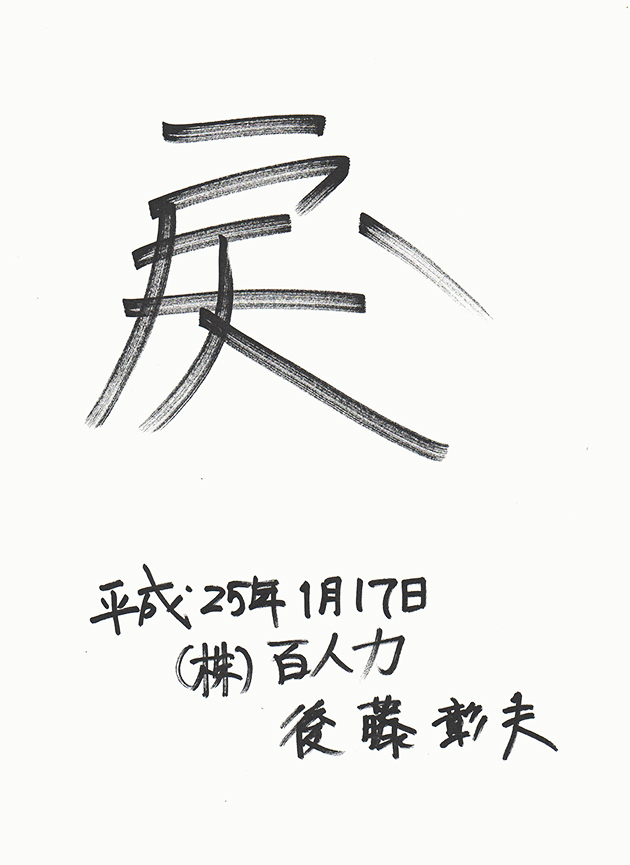 戾
平成25年1月17日
(株)百人力
後藤彰夫